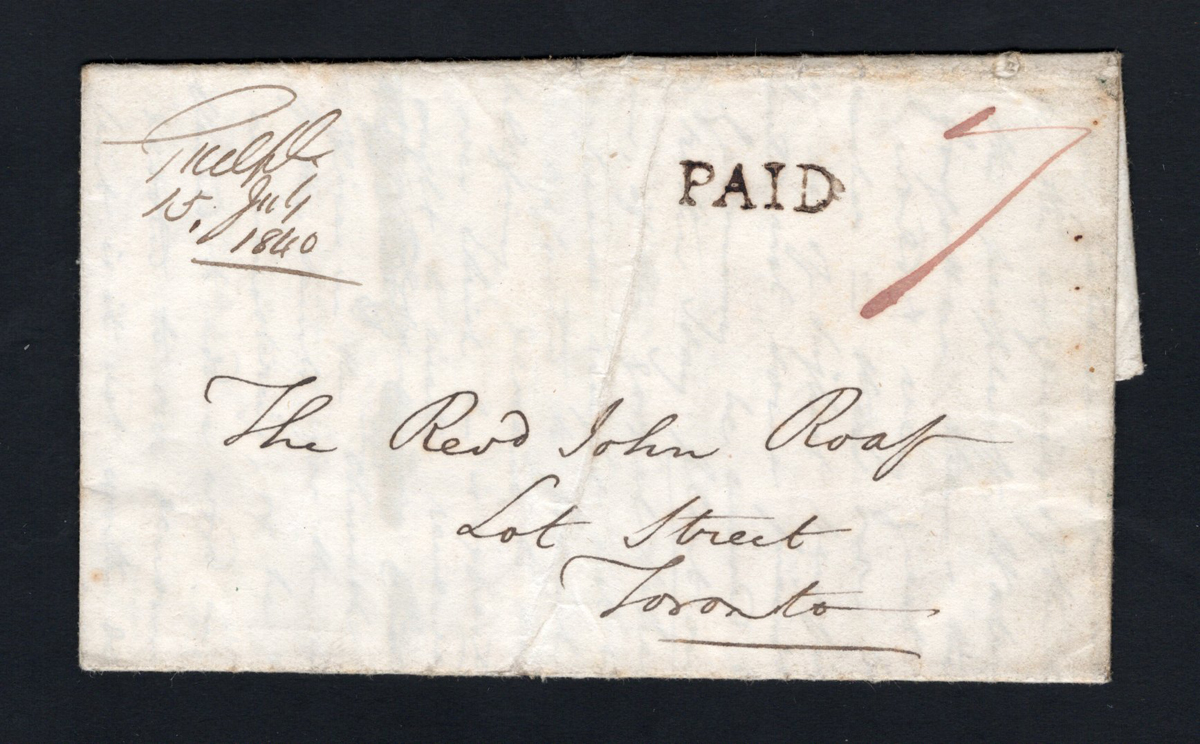 Guelph
15. July
1840
PAID
7
The Revd John Roaf
Lot Street
Toronto